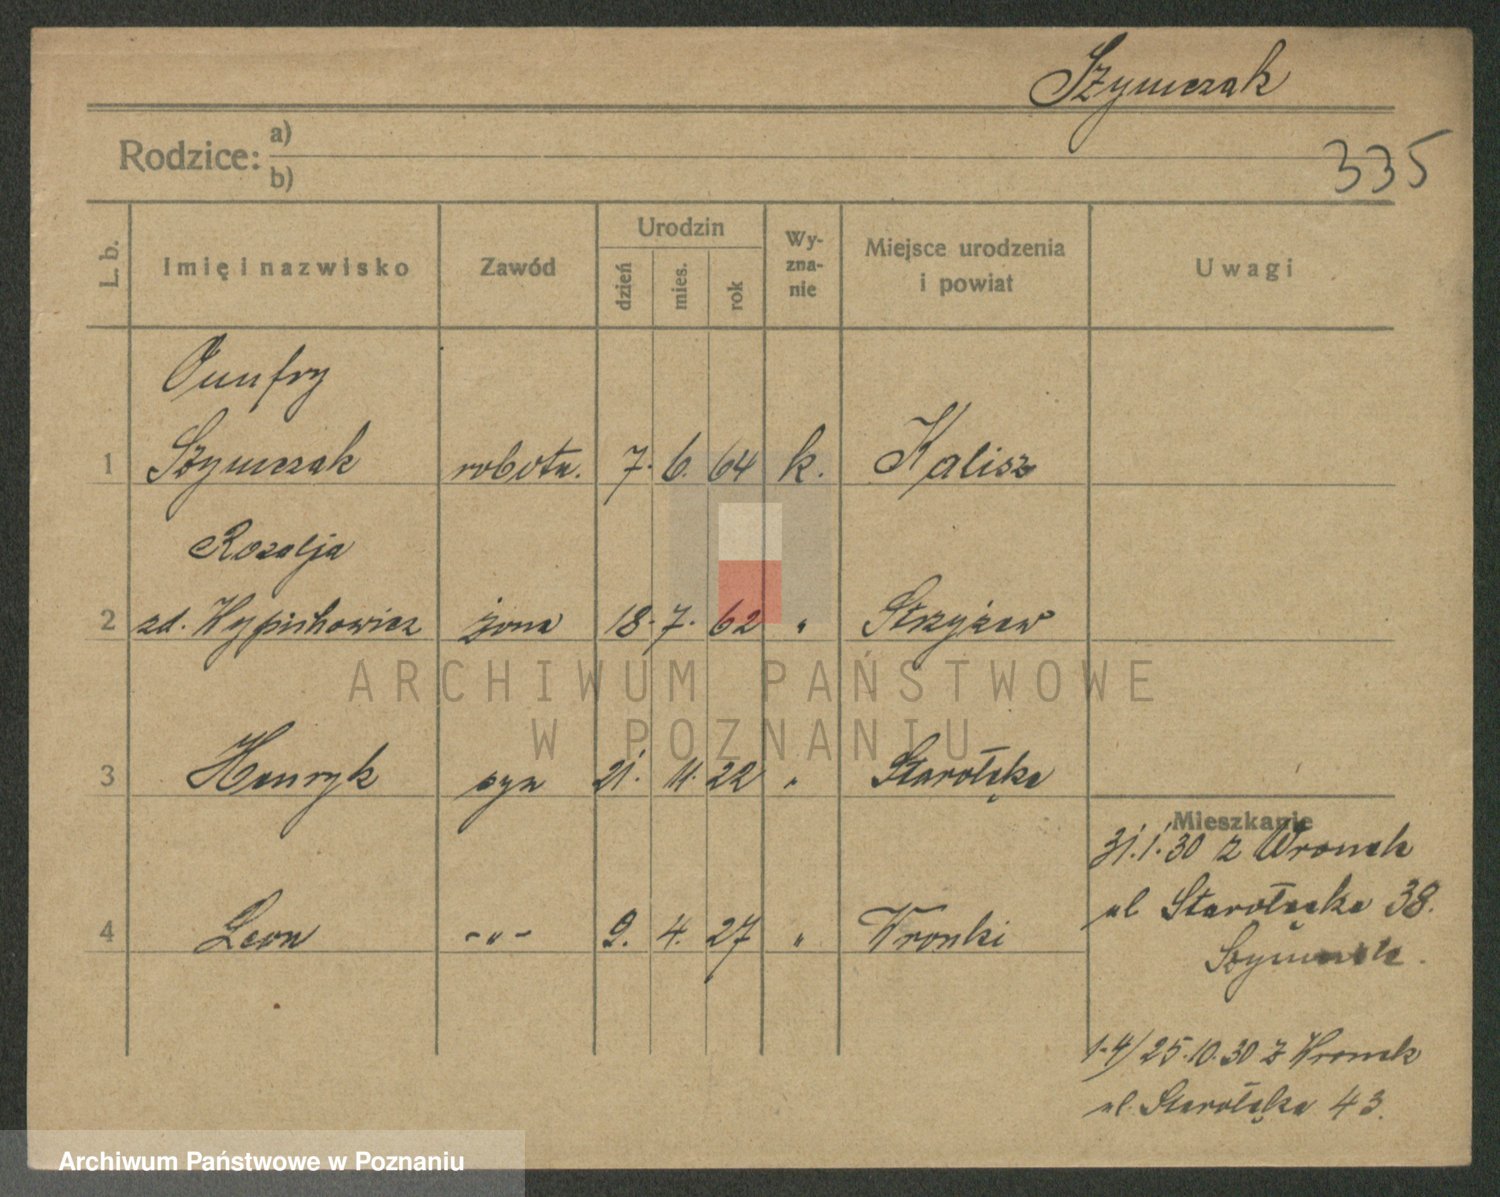 Szymczak
335
Rodzice: a)
b)
L. b. Imię i nazwisko Zawód Urodzin dzień mies. rok Wy-zna-nie Miejsce urodzenia i powiat Uwagi
Onufry
1 Szymczak robotn. 7. 6. 64 k. Kalisz
Rozalja
2 zd. Wypichowicz żona 18. 7. 62 " Strzyżew
3 Henryk syn 21. 11. 22 " Starołęka
Mieszkanie
31.1.30 z Wronek
4 Leon -"- 9. 4. 27 " Wronki
ul Starołęcka 38.
Szymczak.
1-4/25.10.30 z Wronek
ul. Starołęka 43.
ARCHIWUM PAŃSTWOWE
W POZNANIU
Archiwum Państwowe w Poznaniu